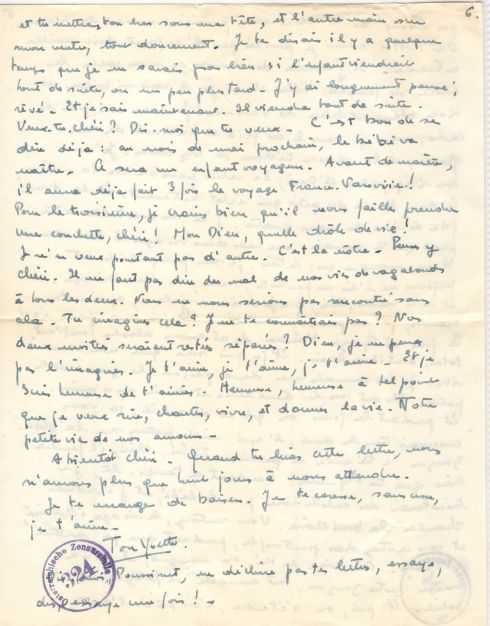 6.
et tu mettras ton bras sous ma tête, et l'autre main sur
mon ventre, tout doucement. Je te disais il y a quelque
temps que je ne savais pas bien si l'enfant viendrait
tout de suite, ou un peu plus tard. J'y ai longuement pensé,
rêvé. Et je sais maintenant. Il viendra tout de suite.
Veux-tu, chéri? Dis-moi que tu veux. C'est bon de se
dire déjà: au mois de mai prochain, le bébé va
naître. Ce sera un enfant voyageur. Avant de naître,
il aura déjà fait 3 fois le voyage France-Varsovie!
Pour le troisième, je crains bien qu'il nous faille prendre
une couchette, chéri! Mon Dieu, quelle drôle de vie!
Je n'en veux pourtant pas d'autre. C'est la nôtre. Penses y
chéri. Il ne faut pas dire du mal de nos vies de vagabonds
à tous les deux. Nous ne nous serions pas rencontrés sans
cela. Tu imagines cela? Je ne te connaîtrais pas? Nos
deux moitiés seraient restées séparées? Dieu, je ne peux
pas l'imaginer. Je t'aime, je t'aime, je t'aime. Et je
suis heureuse de t'aimer. Heureuse, heureuse à tel point
que je veux rire, chanter, vivre, et donner la vie. Notre
petite vie de nos amours.
A bientôt chéri. Quand tu liras cette lettre, nous
n'aurons plus que huit jours à nous attendre.
Je te mange de baisers. Je te caresse, sans cesse,
je t'aime.
Ton Yvette
Poussinet, ne déchire pas tes lettres, essaye,
dis, essaye une fois!
Österreichische Zensurstelle
324